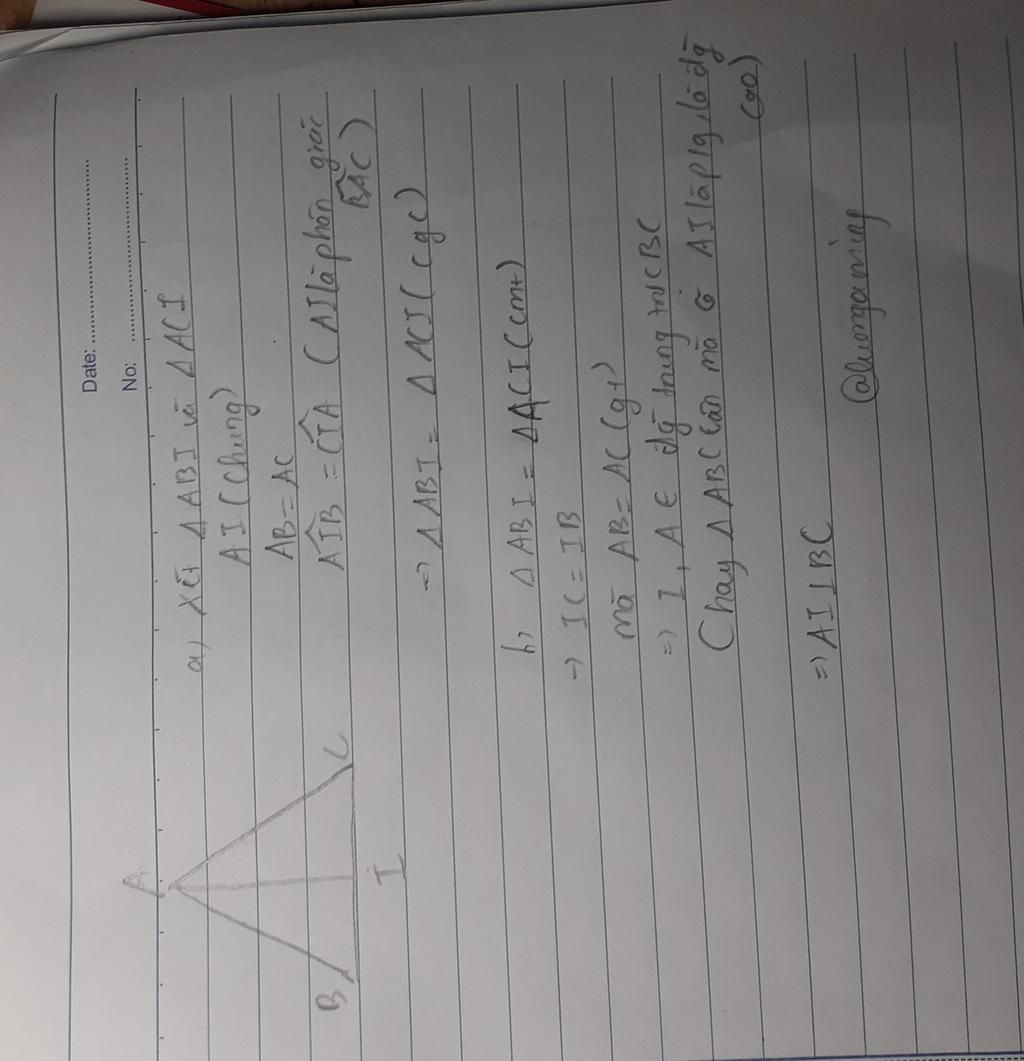 Date:
No:
A
B
C
I
a) Xét △ABI và △ACI
AI (Chung)
AB = AC
AIB = CIA (AI là phân giác
BAC)
=> △ABI = △ACI (cgc)
b, △ABI = △ACI (cmt)
=> IC = IB
mà AB = AC (gt)
=> I, A ∈ đg trung trực BC
(hay △ABC cân mà có AI là p/g, là đg
cao)
=> AI ⊥ BC